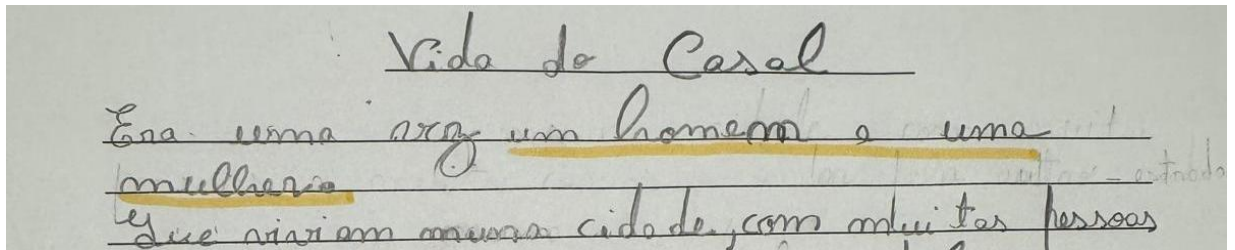 Vida de Casal
Era uma vez um homem e uma
mulher
que viviam numa cidade, com muitas pessoas